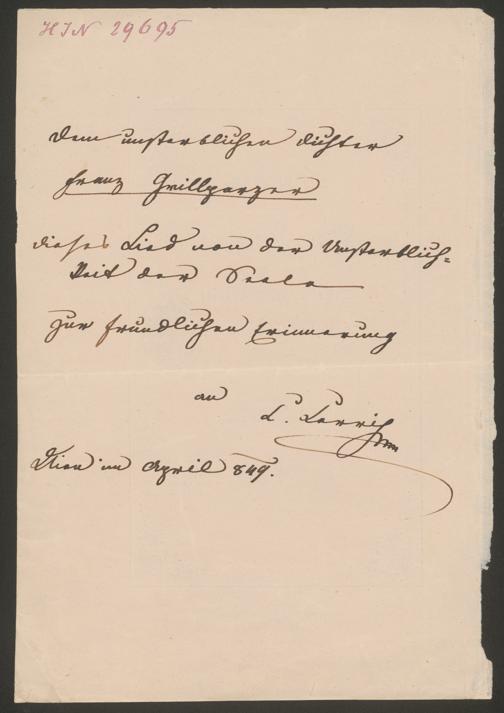 HIN 29695
Dem unsterblichen Dichter
Franz Grillparzer
dieses Lied von der Unsterblich=
keit der Seele
zur freundlichen Erinnerung
an
Wien im April 849.